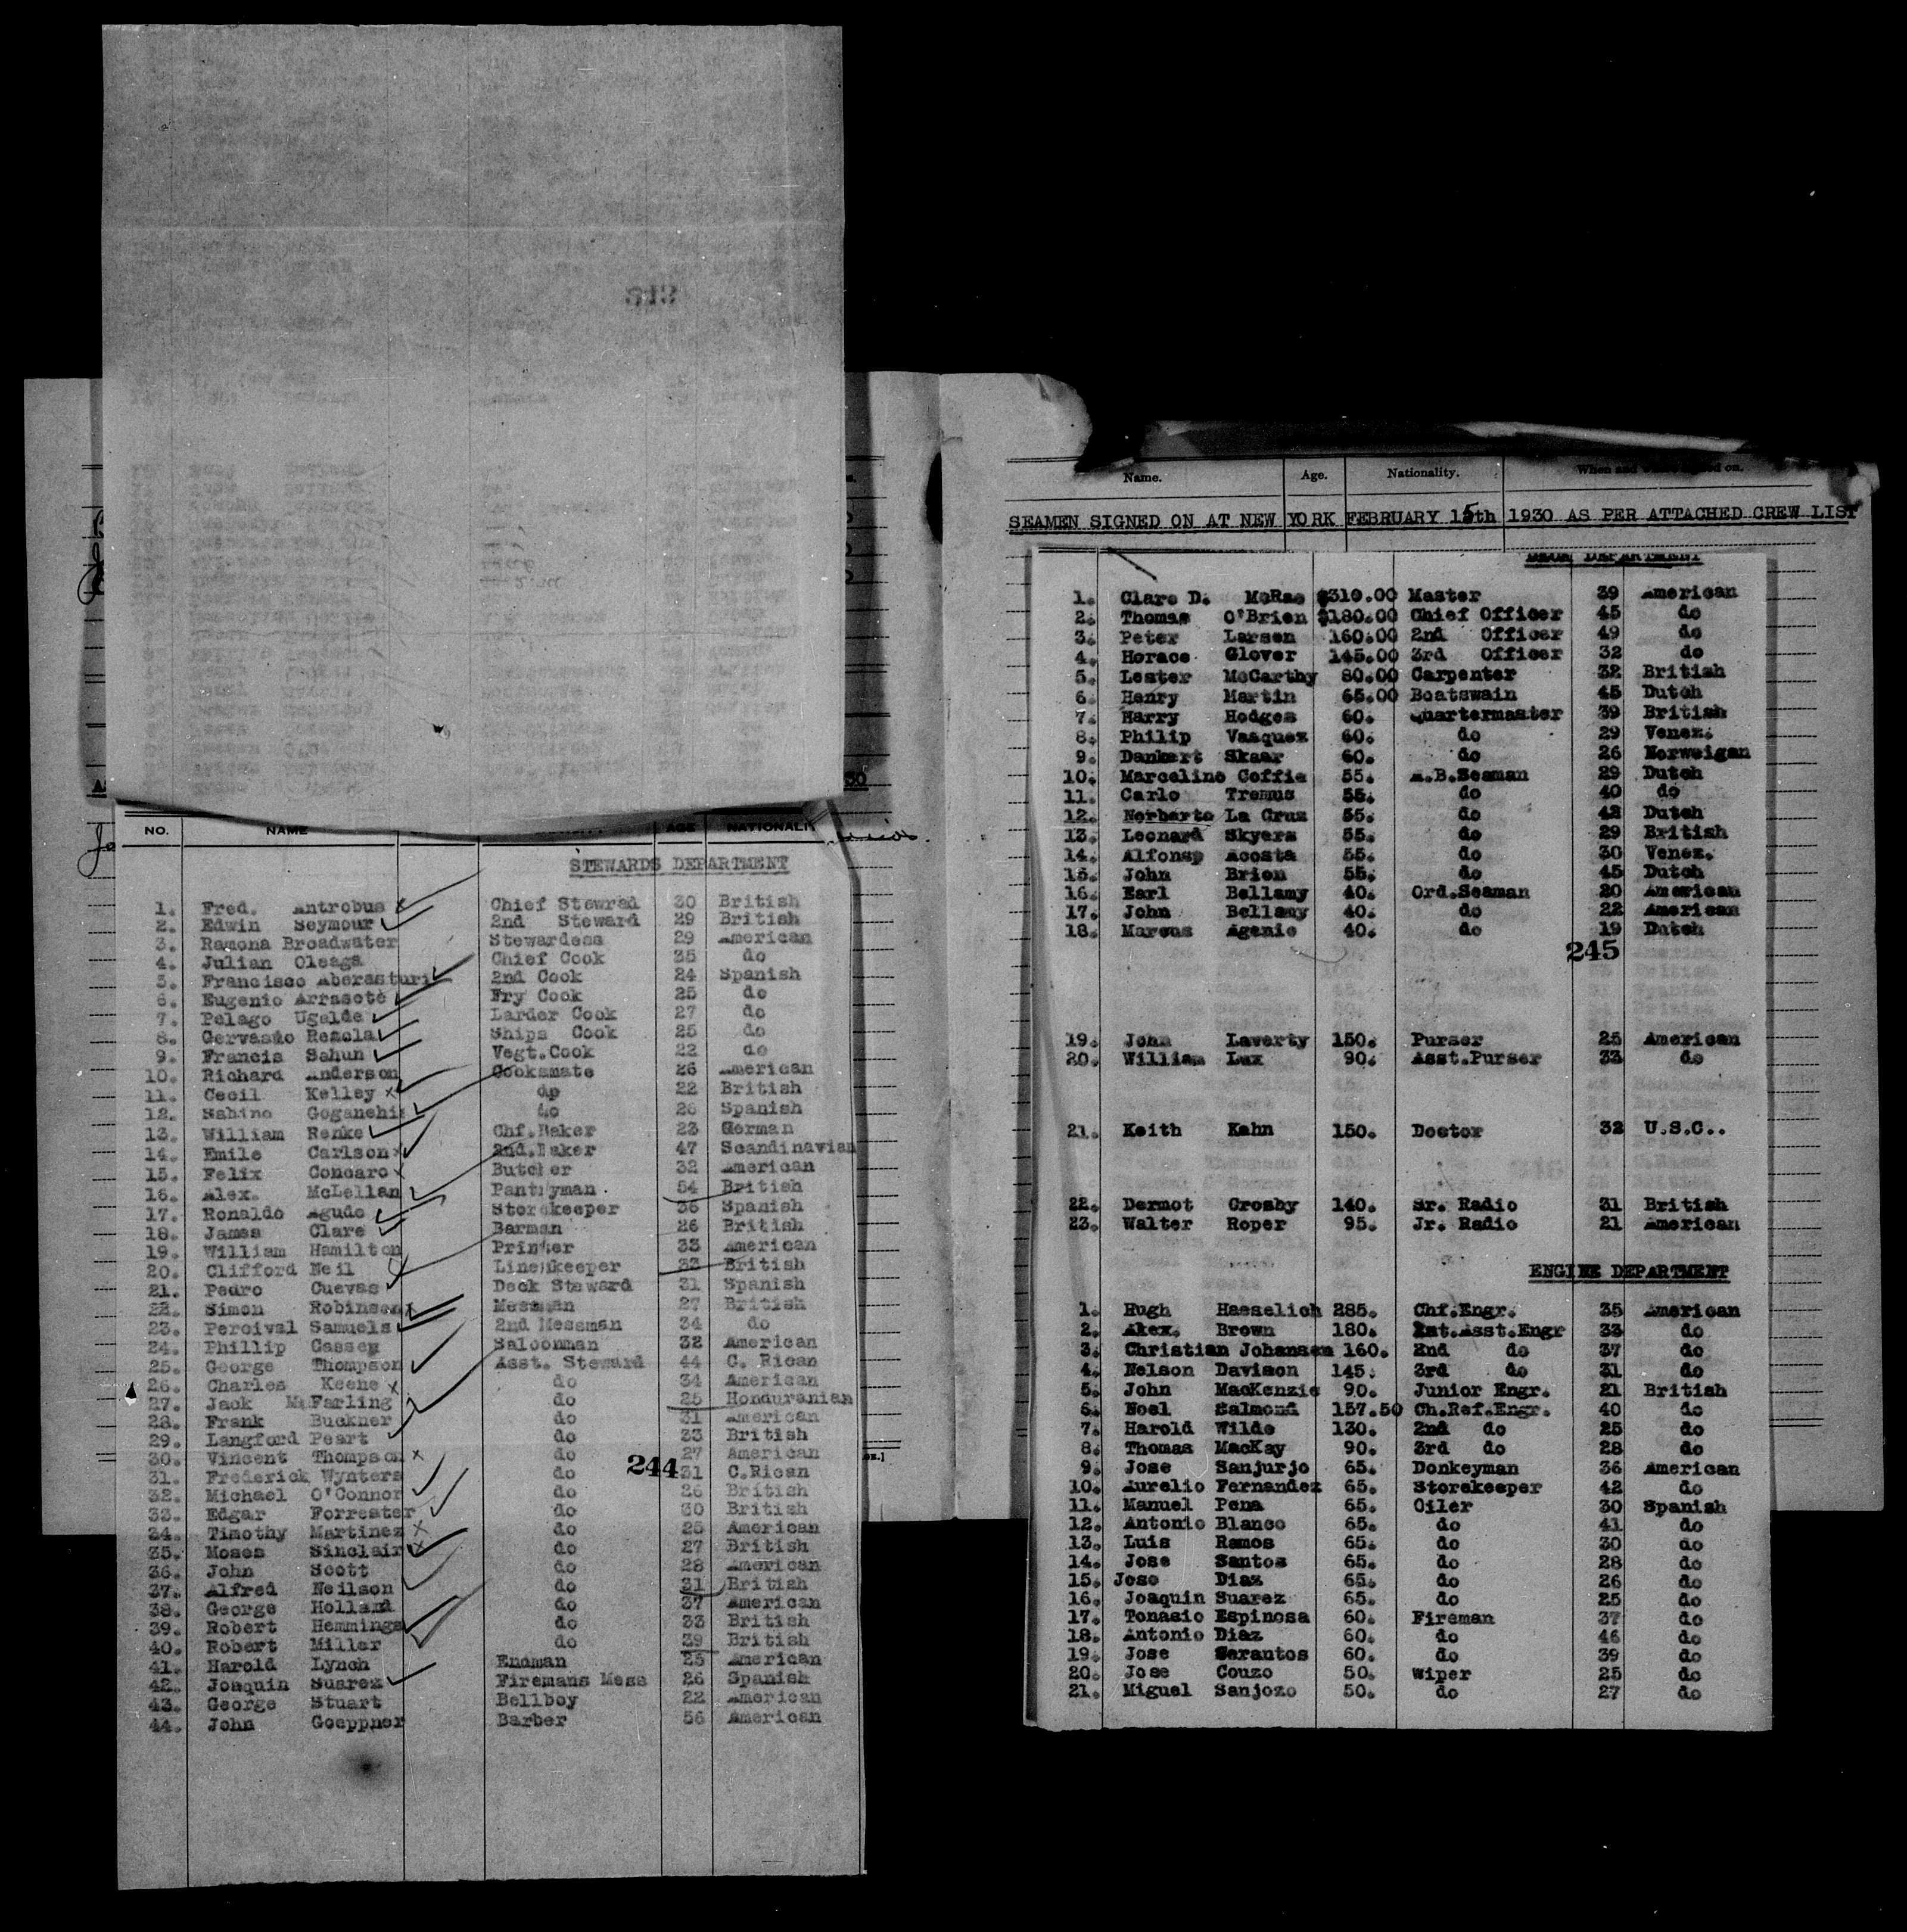 NO. NAME AGE NATIONALI
STEWARDS DEPARTMENT
1. Fred. Antrobus x Chief Stewrad 30 British
2. Edwin Seymour 2nd Steward 29 British
3. Ramona Broadwater Stewardess 29 American
4. Julian Oleaga Chief Cook 35 do
5. Francisco Aberasturi 2nd Cook 24 Spanish
6. Eugenio Arrasete Fry Cook 25 do
7. Pelago Ugalde Larder Cook 27 do
8. Gervasio Remola Ships Cook 25 do
9. Francis Sahun Vegt.Cook 22 do
10. Richard Anderson Cooksmate 26 American
11. Cecil Kelley x do 22 British
12. Sabino Goganehi do 26 Spanish
13. William Renke Chf.Baker 23 German
14. Emile Carlson x 2nd.Baker 47 Scandinavian
15. Felix Concaro x Butcher 32 American
16. Alex. McLellan Pantryman 54 British
17. Ronaldo Agudo Storekeeper 36 Spanish
18. James Clare Barman 26 British
19. William Hamilton Printer 33 American
20. Clifford Neil Linenkeeper 32 British
21. Pedro Cuevas Deck Steward 31 Spanish
22. Simon Robinson x Messman 27 British
23. Percival Samuels 2nd Messman 34 do
24. Phillip Cassey Saloonman 32 American
25. George Thompson Asst. Steward 44 C. Rican
26. Charles Keene x do 34 American
27. Jack McFarling do 25 Honduranian
28. Frank Buckner do 31 American
29. Langford Peart do 33 British
30. Vincent Thompson x do 27 American
31. Frederick Wynters do 31 C.Rican
244
32. Michael O'Connor do 26 British
33. Edgar Forrester do 30 British
34. Timothy Martinez x do 25 American
35. Moses Sinclair x do 27 British
36. John Scott do 28 American
37. Alfred Neilson do 31 British
38. George Holland do 37 American
39. Robert Hemmings do 33 British
40. Robert Miller do 39 British
41. Harold Lynch Endman 25 American
42. Joaquin Suarez Firemans Mess 26 Spanish
43. George Stuart Bellboy 22 American
44. John Goeppner Barber 56 American
Name. Age. Nationality. When and on.
SEAMEN SIGNED ON AT NEW YORK FEBRUARY 15th 1930 AS PER ATTACHED CREW LIST
DECK DEPARTMENT
1. Clare D. McRae $310.00 Master 39 American
2. Thomas O'Brien $180.00 Chief Officer 45 do
3. Peter Larsen 160.00 2nd Officer 49 do
4. Horace Glover 145.00 3rd Officer 32 do
5. Lester McCarthy 80.00 Carpenter 32 British
6. Henry Martin 65.00 Boatswain 45 Dutch
7. Harry Hodges 60. Quartermaster 39 British
8. Philip Vasquez 60. do 29 Venez.
9. Dankert Skaar 60. do 26 Norweigan
10. Marcelino Coffie 55. A.B.Seaman 29 Dutch
11. Carlo Tromus 55. do 40 do
12. Norberto La Cruz 55. do 42 Dutch
13. Leonard Skyers 55. do 29 British
14. Alfonsp Acosta 55. do 30 Venez.
15. John Brion 55. do 45 Dutch
16. Earl Bellamy 40. Ord.Seaman 20 American
17. John Bellamy 40. do 22 American
18. Marcus Agenie 40. do 19 Dutch
245
19. John Laverty 150. Purser 25 American
20. William Lux 90. Asst.Purser 33 do
21. Keith Kahn 150. Doctor 32 U.S.C..
22. Dermot Crosby 140. Sr. Radio 31 British
23. Walter Roper 95. Jr. Radio 21 American
ENGINE DEPARTMENT
1. Hugh Haeselich 285. Chf.Engr. 35 American
2. Alex. Brown 180. 1st.Asst.Engr 33 do
3. Christian Johansen 160. 2nd do 37 do
4. Nelson Davison 145. 3rd do 31 do
5. John MacKenzie 90. Junior Engr. 21 British
6. Noel Salmond 157.50 Ch.Ref.Engr. 40 do
7. Harold Wilde 130. 2nd do 25 do
8. Thomas MacKay 90. 3rd do 28 do
9. Jose Sanjurjo 65. Donkeyman 36 American
10. Aurelio Fernandez 65. Storekeeper 42 do
11. Manuel Pena 65. Oiler 30 Spanish
12. Antonio Blanco 65. do 41 do
13. Luis Ramos 65. do 30 do
14. Jose Santos 65. do 28 do
15. Jose Diaz 65. do 26 do
16. Joaquin Suarez 65. do 25 do
17. Tonasio Espinosa 60. Fireman 37 do
18. Antonio Diaz 60. do 46 do
19. Jose Sarantos 60. do 39 do
20. Jose Couzo 50. Wiper 25 do
21. Miguel Sanjozo 50. do 27 do